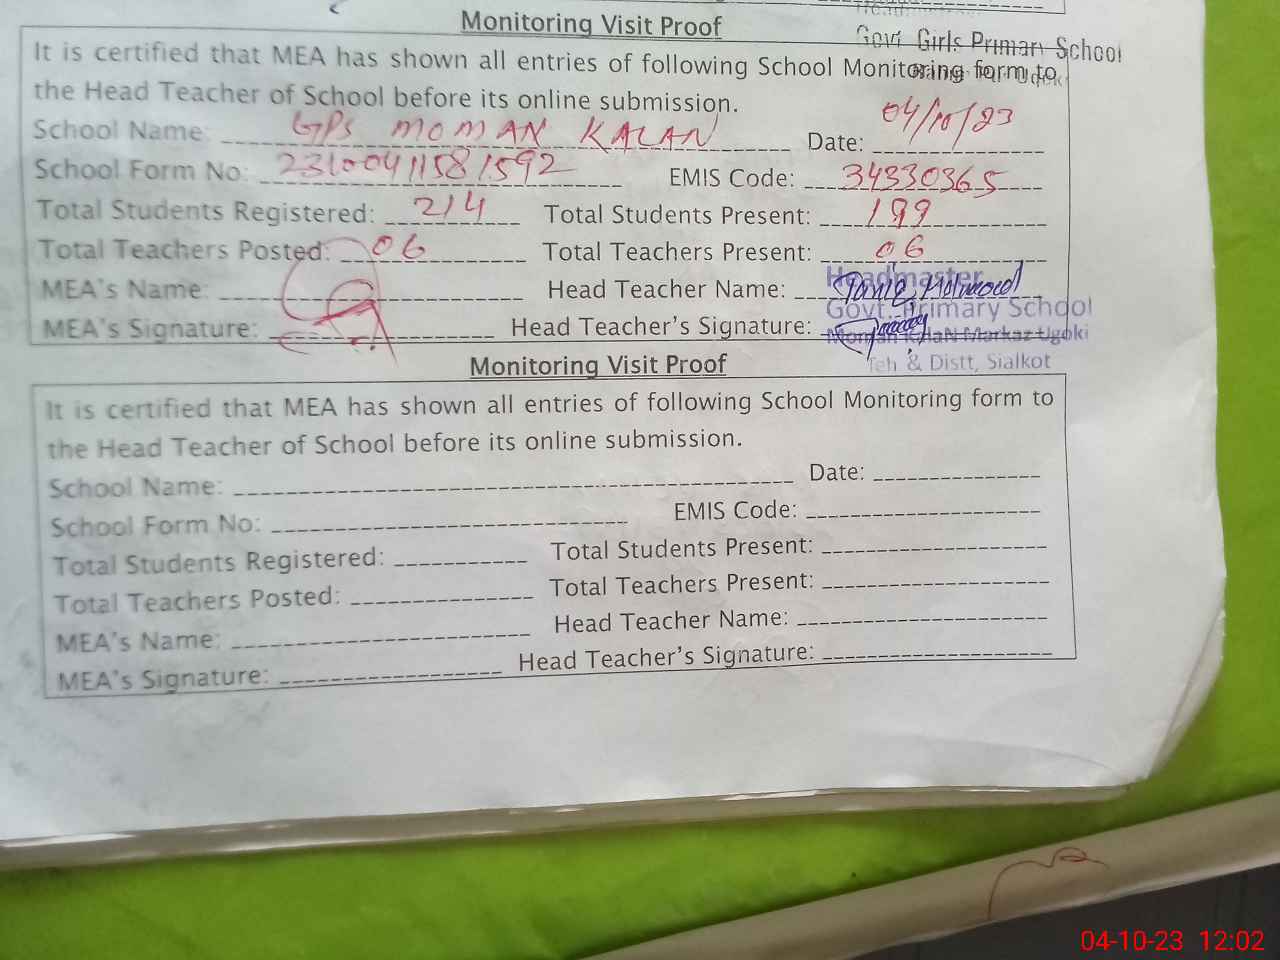 Monitoring Visit Proof
Govt Girls Primary School
It is certified that MEA has shown all entries of following School Monitoring form to
the Head Teacher of School before its online submission.
School Name: GPS MOMAN KALAN Date: 04/10/23
School Form No: 23100411581592 EMIS Code: 34330365
Total Students Registered: 214 Total Students Present: 199
Total Teachers Posted: 06 Total Teachers Present: 06
Headmaster
MEA's Name: Head Teacher Name:
Govt. Primary School
MEA's Signature: Head Teacher's Signature:
Moman KalaN Markaz Ugoki
Teh & Distt, Sialkot
Monitoring Visit Proof
It is certified that MEA has shown all entries of following School Monitoring form to
the Head Teacher of School before its online submission.
School Name: Date:
School Form No: EMIS Code:
Total Students Registered: Total Students Present:
Total Teachers Posted: Total Teachers Present:
MEA's Name: Head Teacher Name:
MEA's Signature: Head Teacher's Signature:
04-10-23 12:02